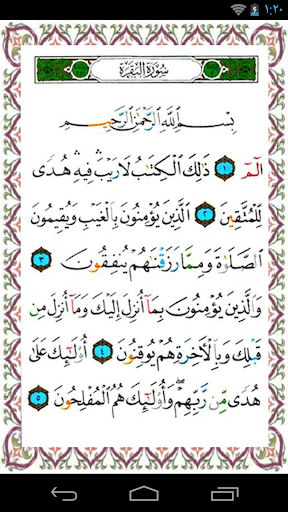 ١:٢٠
سُورَةُ البَقَرَةِ
بِسْمِ ٱللَّهِ ٱلرَّحْمَٰنِ ٱلرَّحِيمِ
الٓمٓ ١ ذَٰلِكَ ٱلْكِتَٰبُ لَا رَيْبَ فِيهِ هُدًى
لِّلْمُتَّقِينَ ٢ ٱلَّذِينَ يُؤْمِنُونَ بِٱلْغَيْبِ وَيُقِيمُونَ
ٱلصَّلَوٰةَ وَمِمَّا رَزَقْنَٰهُمْ يُنفِقُونَ ٣
وَٱلَّذِينَ يُؤْمِنُونَ بِمَآ أُنزِلَ إِلَيْكَ وَمَآ أُنزِلَ مِن
قَبْلِكَ وَبِٱلْأَخِرَةِ هُمْ يُوقِنُونَ ٤ أُو۟لَٰٓئِكَ عَلَىٰ
هُدًى مِّن رَّبِّهِمْ ۖ وَأُو۟لَٰٓئِكَ هُمُ ٱلْمُفْلِحُونَ ٥